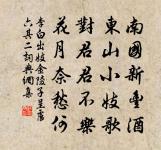 南國新豐酒
東山小妓歌
對君君不樂
花月奈愁何
李白出妓金陵子呈盧
六其二詞典網集